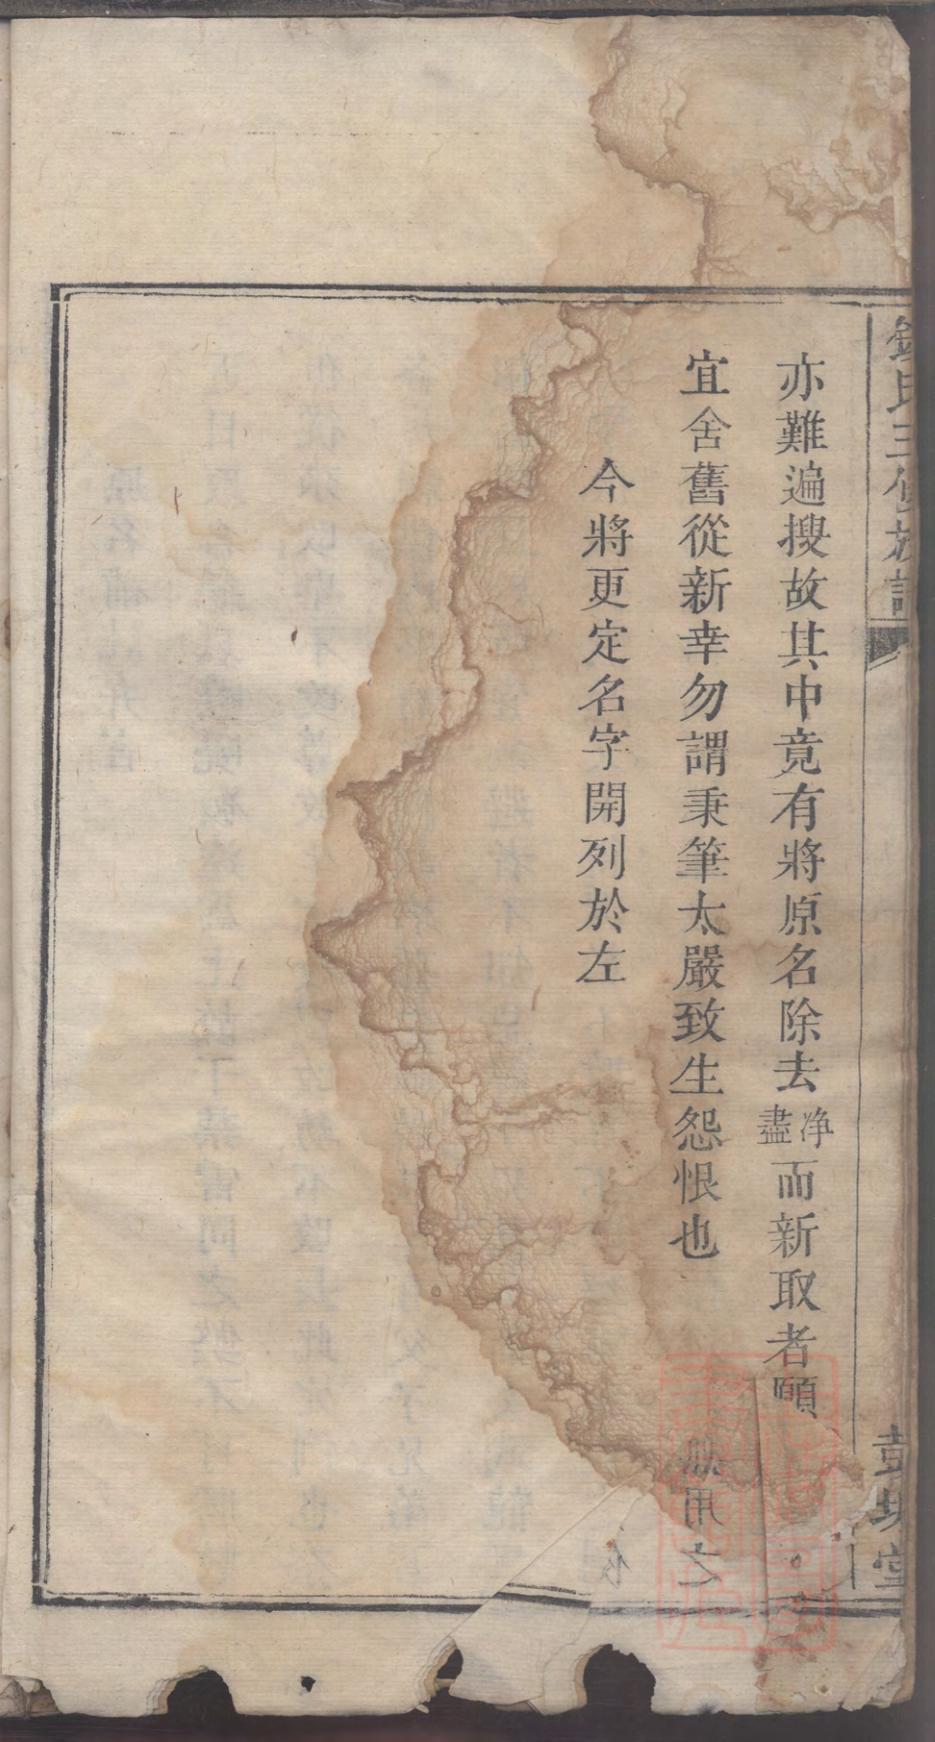 氏三修族譜
堂
亦難遍搜故其中竟有將原名除去净盡而新取者願
宜舍舊從新幸勿謂秉筆太嚴致生怨恨也
今將更定名字開列於左